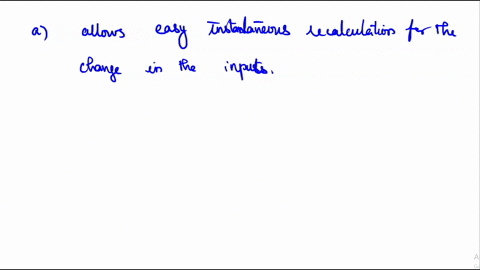 a) allows easy instantaneous recalculation for the
change in the inputs.